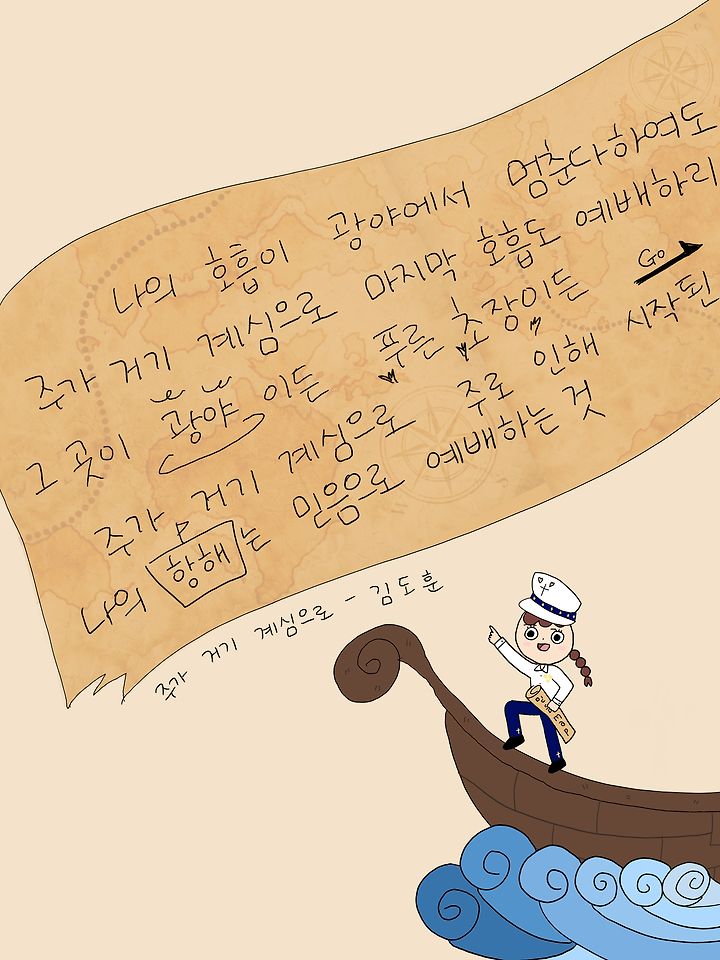 나의 호흡이 광야에서 멈춘다하여도
주가 거기 계심으로 마지막 호흡도 예배하리
Go
그 곳이 광야이든 푸른 초장이든
주가 거기 계심으로 주로 인해 시작된
나의 항해는 믿음으로 예배하는 것
주가 거기 계심으로 - 김도훈